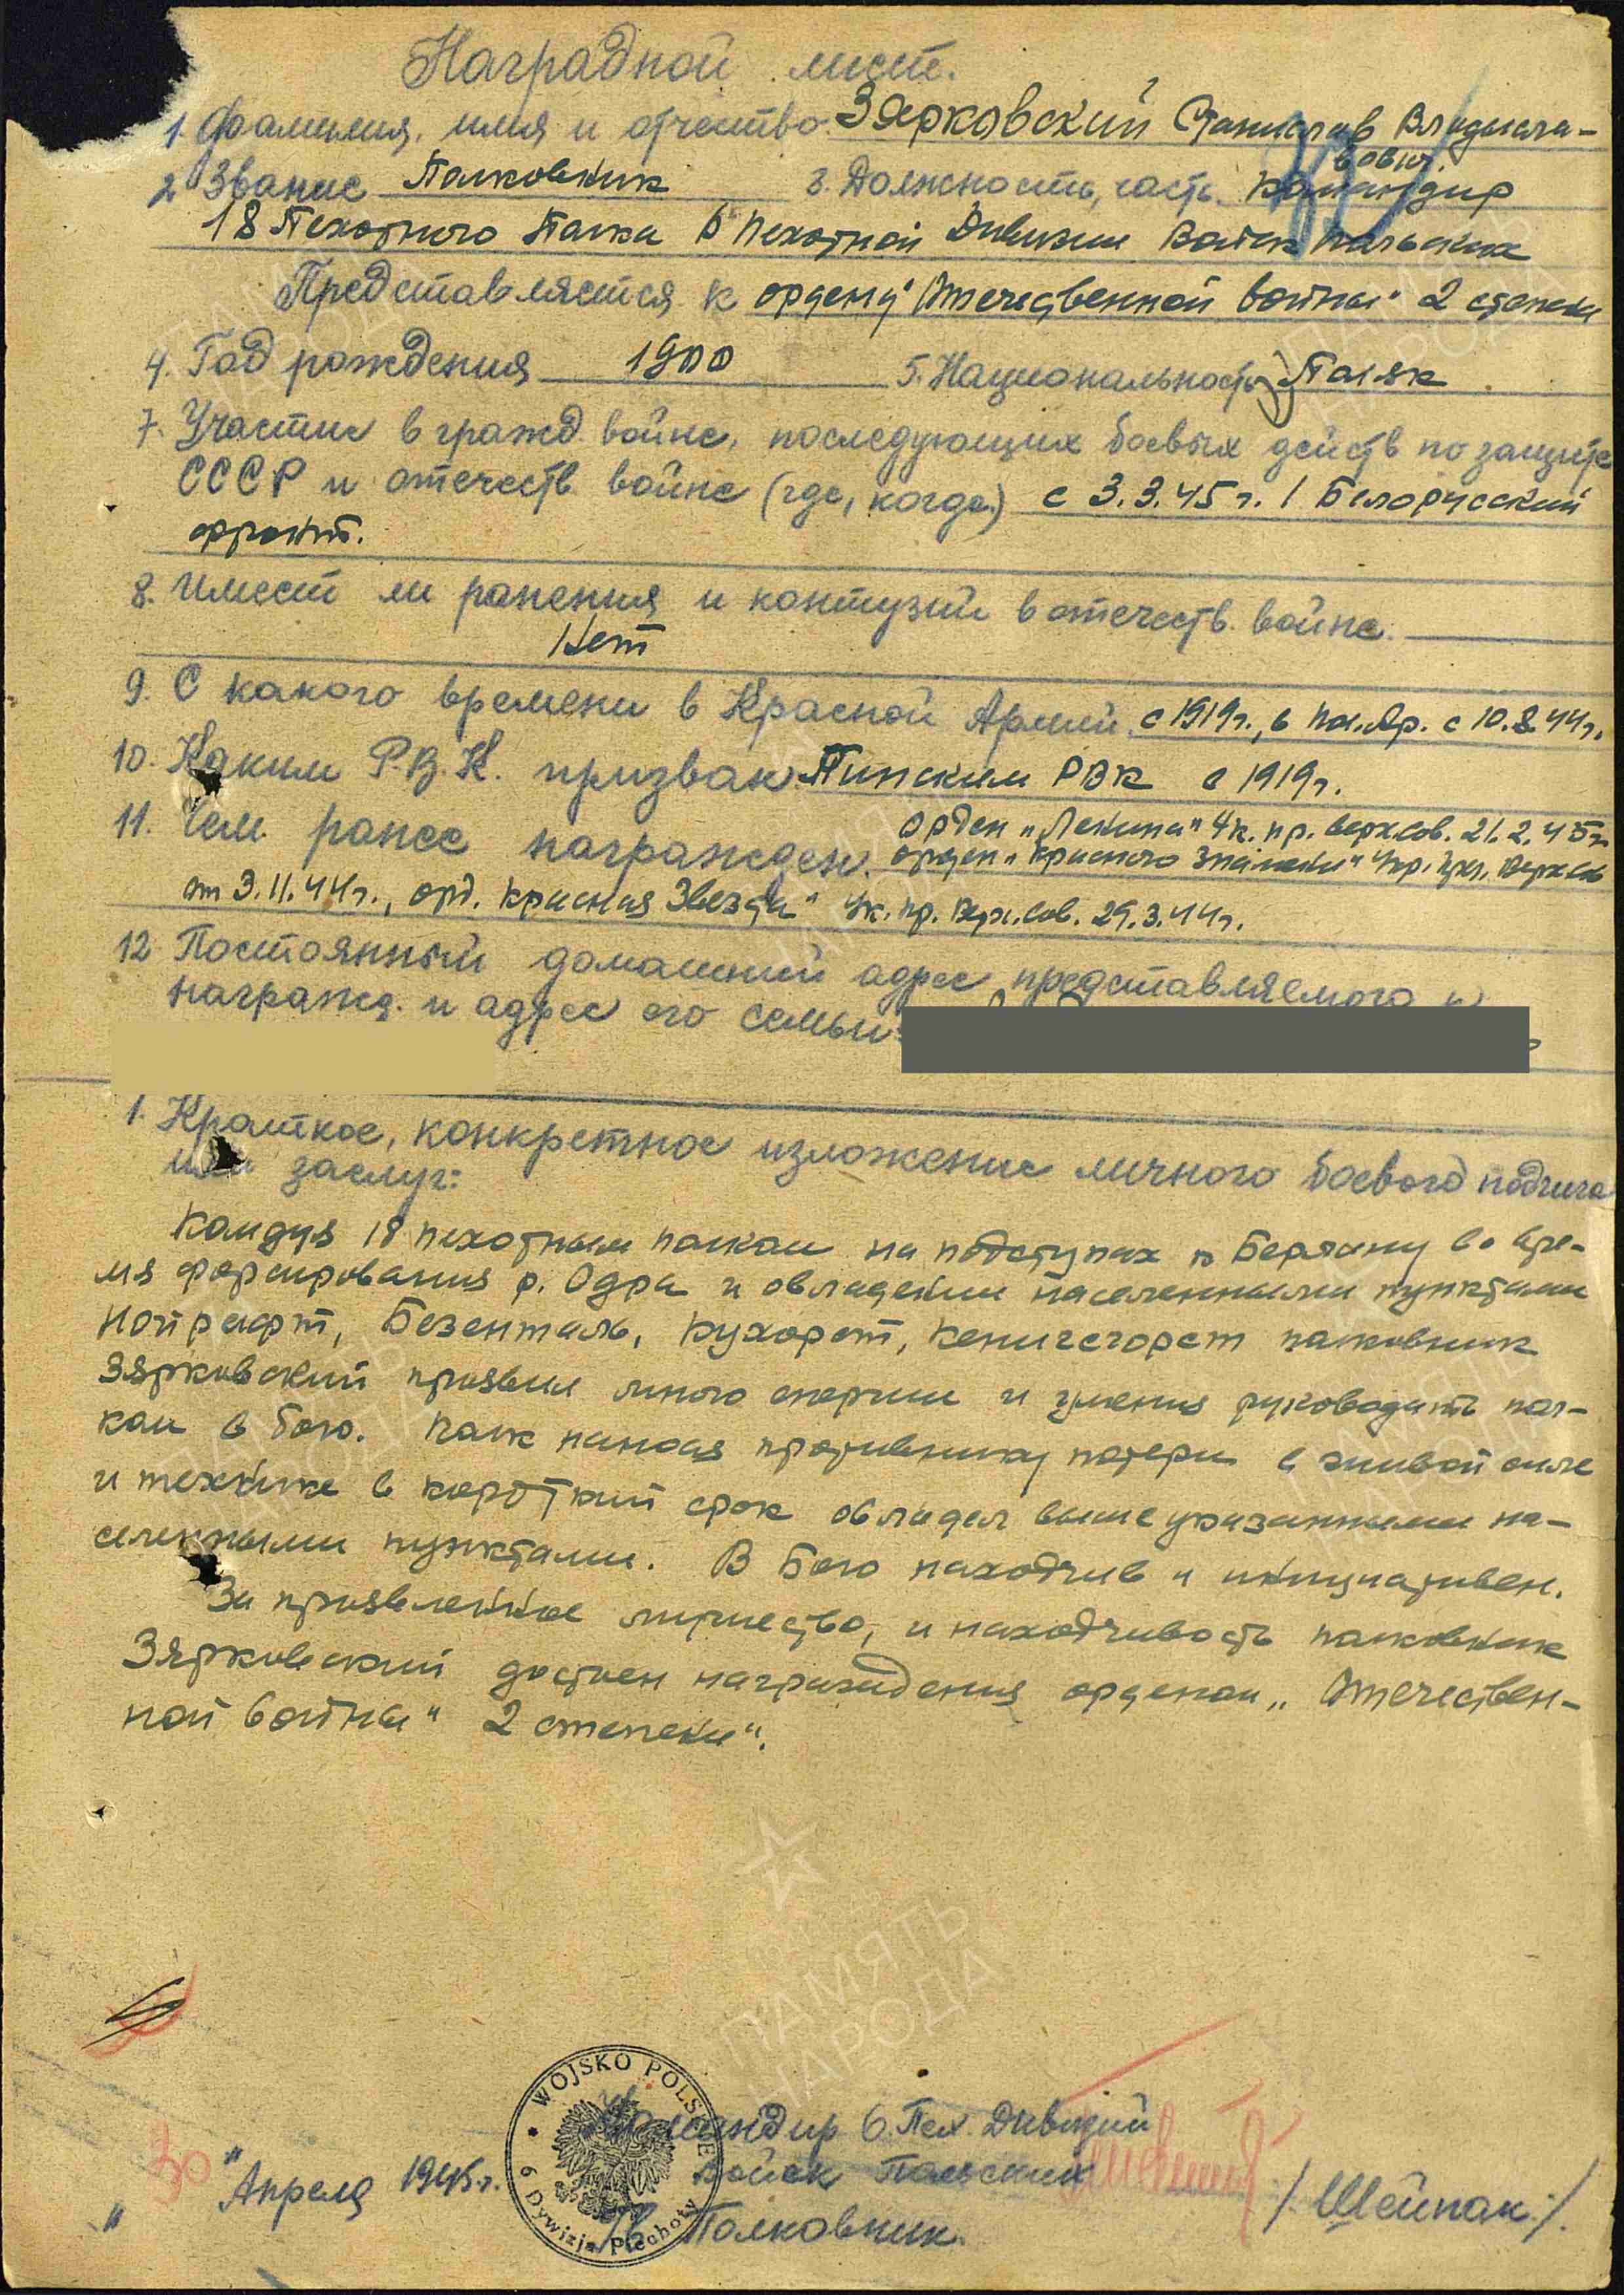 Наградной лист.
1. Фамилия, имя и отчество Зярковский Станислав Владисла-
вович
2 Звание Полковник 3. Должность, часть. Командир
18 Пехотного Полка 6 Пехотной Дивизии Войск Польских
Представляется к ордену "Отечественной войны" 2 степени
4. Год рождения 1900 5. Национальность Поляк
7. Участие в гражд. войне, последующих боевых действ по защите
СССР и отечеств войне (где, когда) с 3.3.45 г. 1 Белорусский
фронт.
8. Имеет ли ранения и контузии в отечеств. войне.
Нет
9. С какого времени в Красной Армии. с 1919 г., в Пол. Ар. с 10.8.44 г.
10. Каким Р.В.К. призван Пинским РВК с 1919 г.
11. Чем ранее награжден. орден "Ленина" Ук. пр. верх. сов. 21.2.45 г.
орден "Красного Знамени" Верх. сов
от 3.11.44 г., орд. Красная Звезда" Ук. пр. Верх. Сов. 29.3.44 г.
12 Постоянный домашний адрес представляемого к
награжд. и адрес его семьи:
1. Краткое, конкретное изложение личного боевого подвига
или заслуг:
Командуя 18 пехотным полком на подступах к Берлину во вре-
мя форсирования р. Одра и овладении населенными пунктами
Нойрафт, Безенталь, Кухорст, Кенигсгорст полковник
Зярковский проявил много энергии и умения руководить пол-
ком в бою. Полк нанося противнику потери в живой силе
и технике в короткий срок овладел выше указанными на-
селенными пунктами. В бою находчив и инициативен.
За проявленное мужество, и находчивость полковник
Зярковский достоен награждения орденом "Отечествен-
ной войны" 2 степени".
WOJSKO POLSKIE
6 Dywizja Piechoty
Командир 6 Пех. Дивизии
Войск Польских
Полковник. /Шейпак./
30 " Апреля 1945 г.
ПАМЯТЬ
НАРОДА